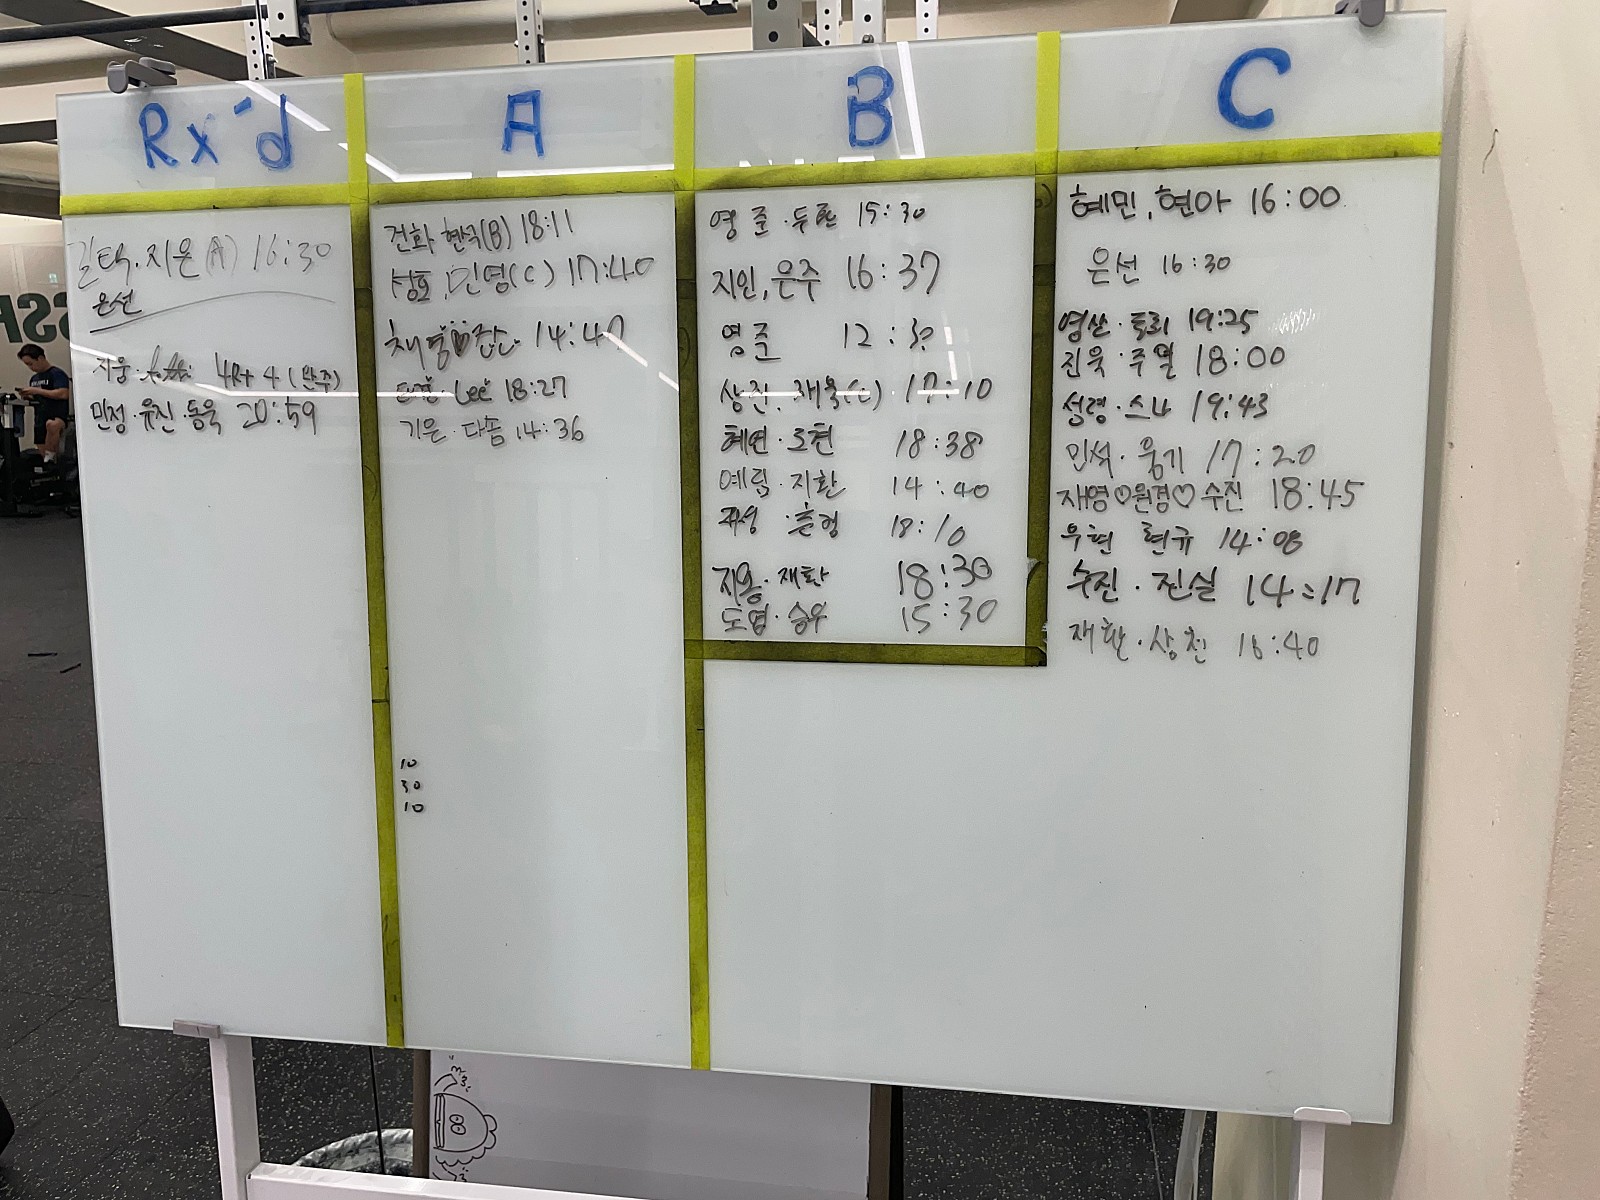 Rx'd
길택·지은(A) 16:30
은선
지웅· 4R+4 (반주)
민정·유진·동욱 20:59
A
건화 현국(B) 18:11
상효, 민영(C) 17:40
채영♡ 14:47
Lee 18:27
기은·다솜 14:36
10
30
10
B
영준·두환 15:30
지인, 은주 16:37
영준 12:30
상진, 재욱(C) 17:10
혜연·도현 18:38
예림·지환 14:40
18:10
지용·재환 18:30
도엽·승우 15:30
C
혜민, 현아 16:00
은선 16:30
영산·토리 19:25
진욱·주열 18:00
성령·스나 19:43
민석·웅기 17:20
재영♡원경♡수진 18:45
우현 현규 14:08
수진·진실 14:17
재환·상천 16:40
8